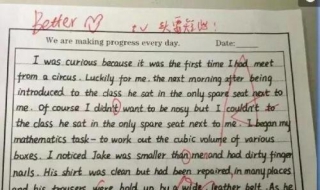 Better
We are making progress every day. Date:
I was curious because it was the first time I had meet
from a circus. Luckily for me. the next morning after being
introduced to the class he sat in the only spare seat next to
me. Of course I didn't want to be nosy but I couldn't to
the class he sat in the only spare seat next to me. I began my
mathematics task- to work out the cubic volume of various
boxes. I noticed Jake was smaller than me and had dirty finger
nails. His shirt was clean but had been repaired, in many places
and his trousers were hold up by a wide leather belt. As he